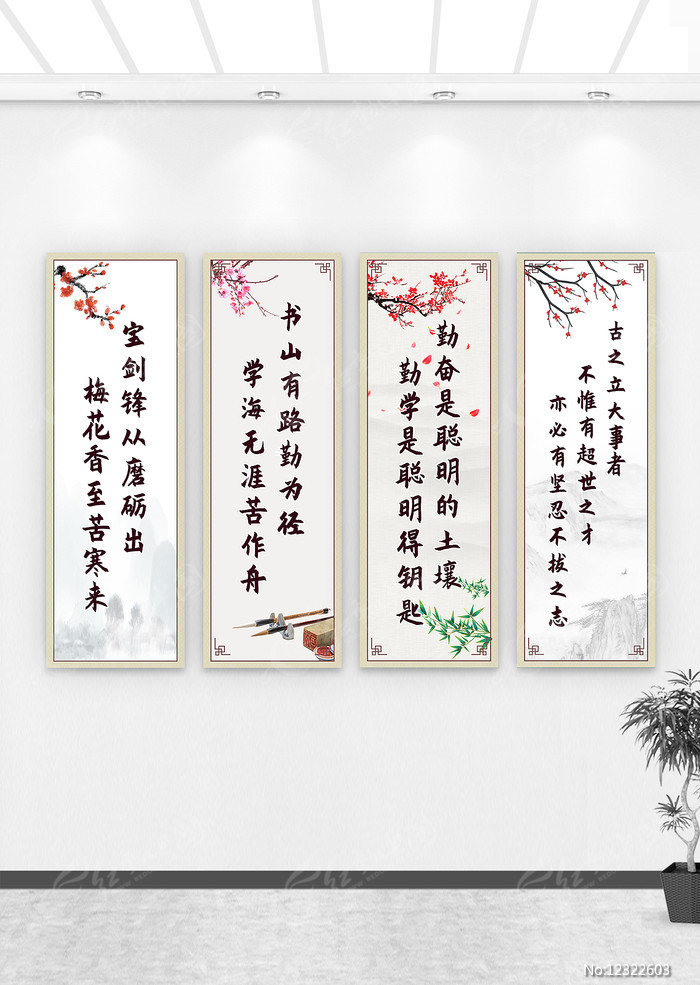 宝剑锋从磨砺出
梅花香至苦寒来
书山有路勤为径
学海无涯苦作舟
勤奋是聪明的土壤
勤学是聪明得钥匙
古之立大事者
不惟有超世之才
亦必有坚忍不拔之志
No:12322603